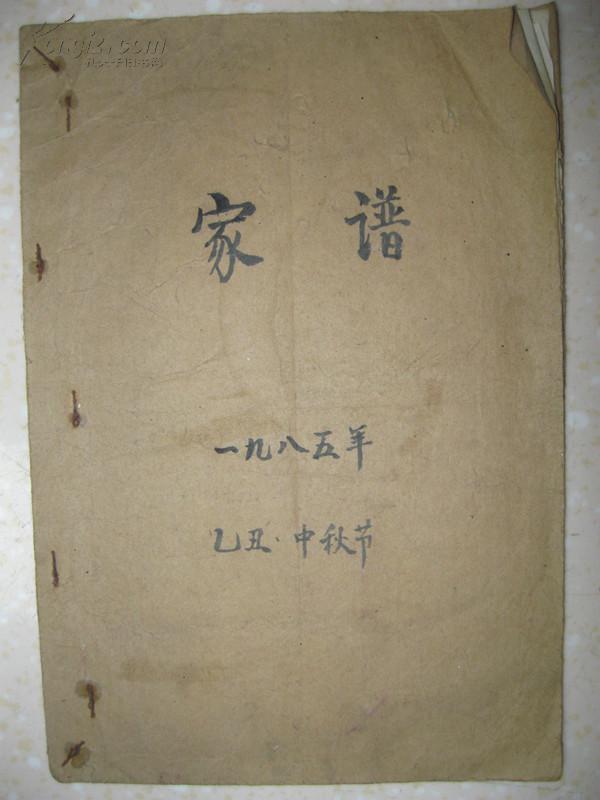 Kongfz.com
孔夫子旧书网
家 谱
一九八五年
乙丑·中秋节